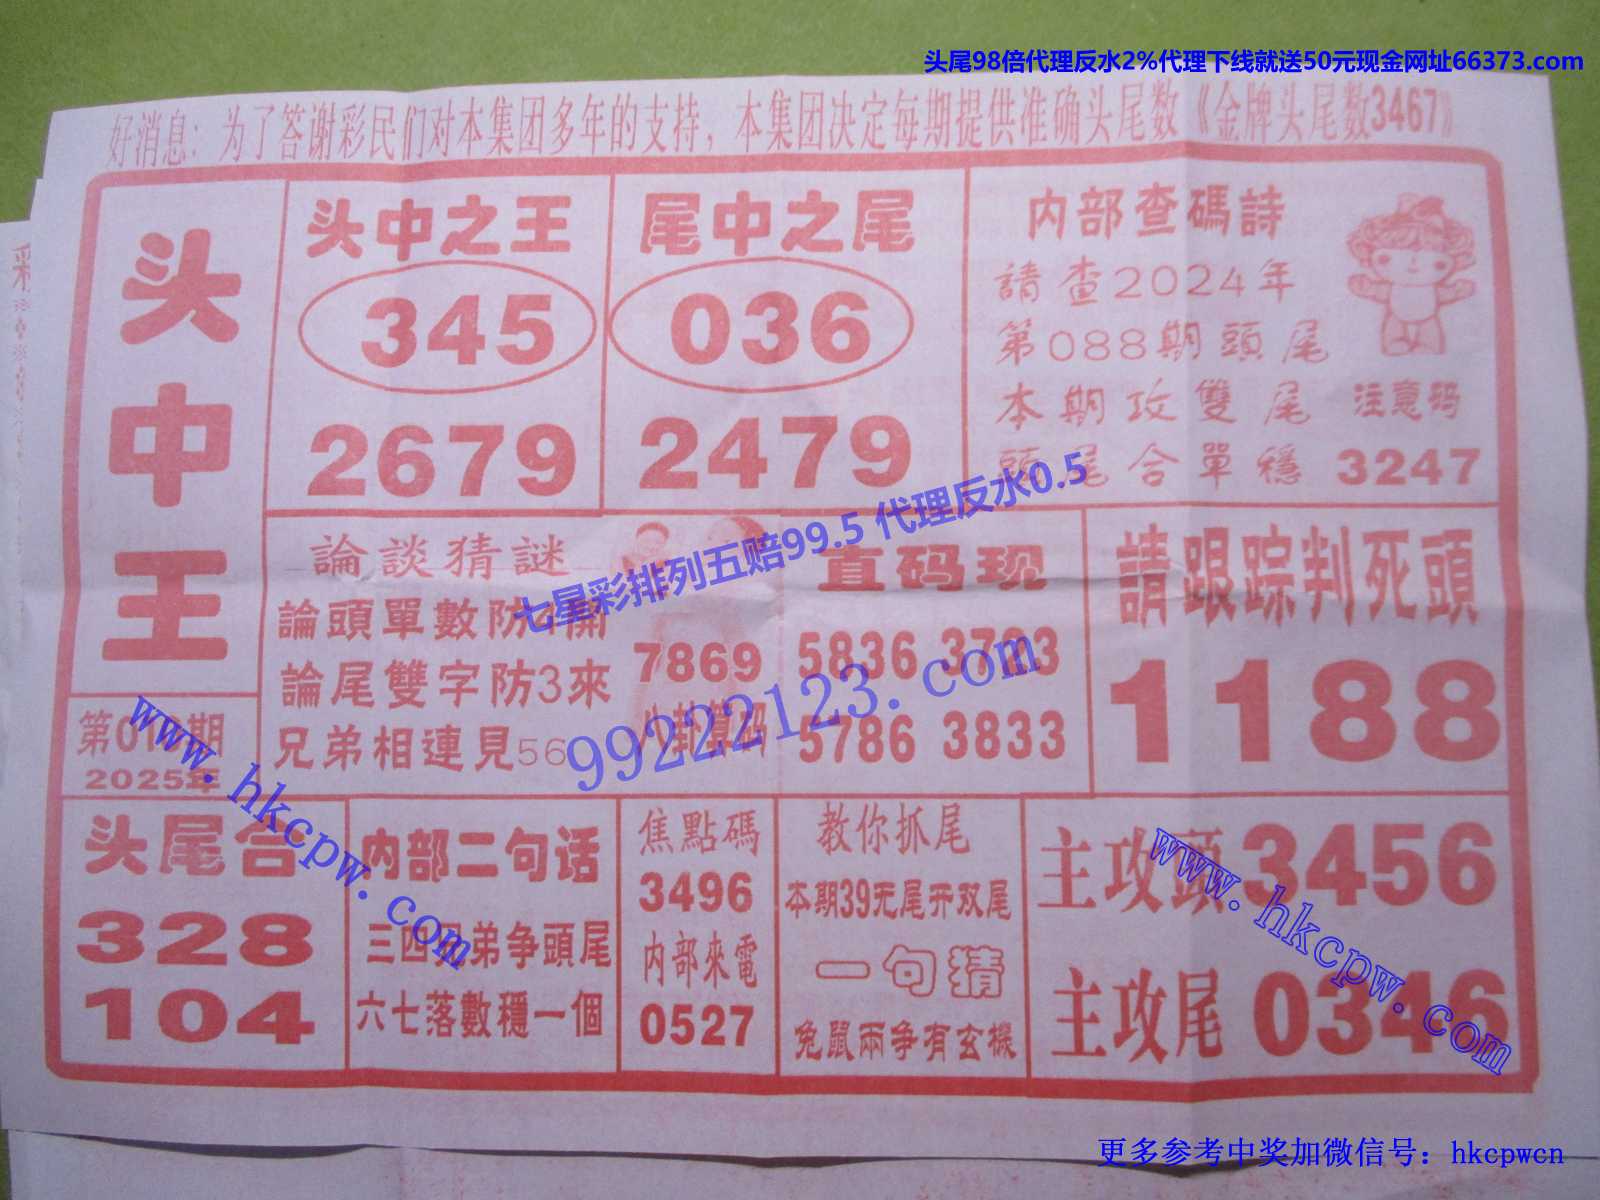 头尾98倍代理反水2%代理下线就送50元现金网址66373.com
好消息：为了答谢彩民们对本集团多年的支持，本集团决定每期提供准确头尾数《金牌头尾数3467》
头中王
第01期
2025年
头中之王
345
2679
尾中之尾
036
2479
内部查碼詩
請查2024年
第088期頭尾
本期攻雙尾
頭尾合單穩
注意码
3247
論談猜謎
論頭單數防4開
論尾雙字防3來
兄弟相連見56
7869
八卦算码
直码现
5836 3703
5786 3833
請跟踪判死頭
1188
七星彩排列五赔99.5 代理反水0.5
99222123.com
www.hkcpw.com
头尾合
328
104
内部二句话
三四兄弟争頭尾
六七落數穩一個
焦點碼
3496
内部來電
0527
教你抓尾
本期39无尾开双尾
一句猜
兔鼠兩争有玄機
主攻頭3456
主攻尾0346
www.hkcpw.com
更多参考中奖加微信号：hkcpwcn